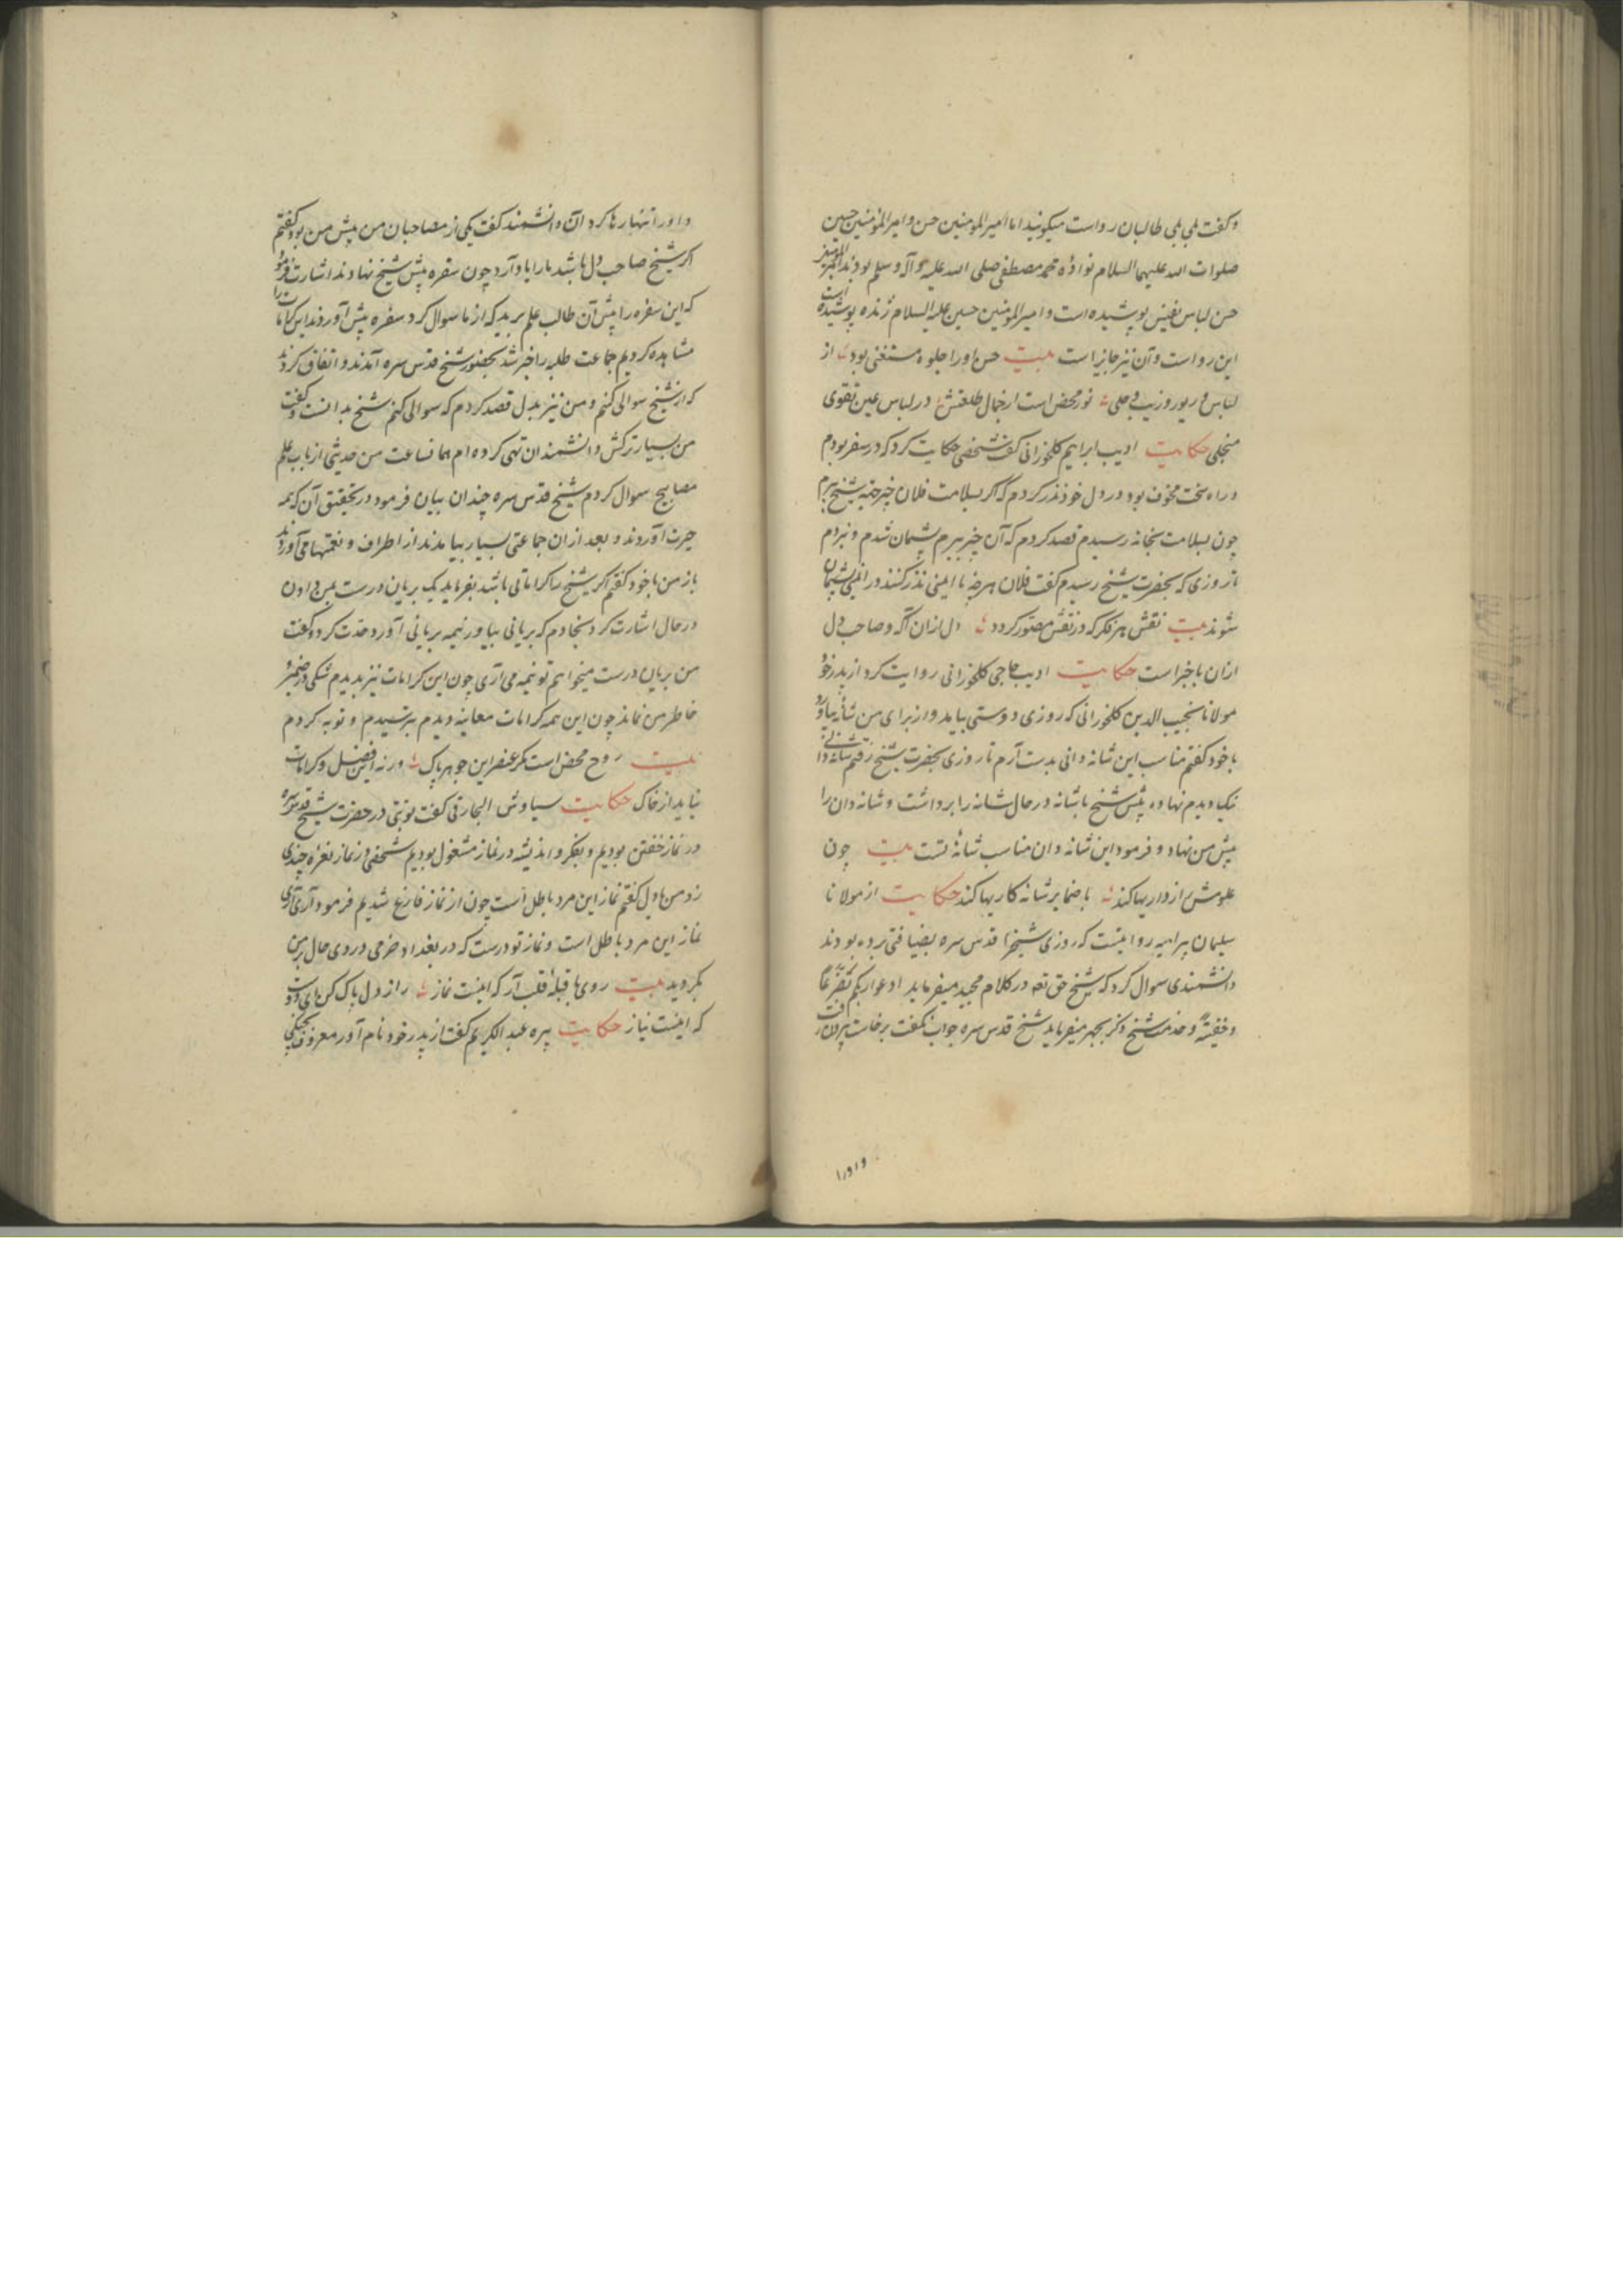 و گفت بلی بلی طالبان رواست میکویند اما امیرالمومنین حسن و امیرالمومنین حسین
صلوات الله علیهما السلام نواده محمد مصطفی صلی الله علیه و آله وسلم بودند امیرالمومنین
حسن لباس نفیس پوشیده است و امیرالمومنین حسین علیه السلام ژنده پوشیده است
این رواست و آن نیز جایز است بیت حسن او را جلوه مستغنی بود از
لباس و زیور و زیب و حلی نور محض است از جمال طلعتش در لباس عین تقوی
منجلی حکایت ادیب ابراهیم کلخورانی گفت شخصی حکایت کرد که در سفر بودم
و راه سخت مخوف بود در دل خود نذر کردم که اگر بسلامت فلان چیز جهة شیخ ببرم
چون بسلامت بخانه رسیدم قصد کردم که آن چیز ببرم پشیمان شدم و نبردم
تا روزی که بحضرت شیخ رسیدم گفت فلان هرچه با ایمنی نذر کنند در ایمنی پشیمان
شوند بیت نقش هر فکر که در نفس مصور کردد دل از آن آکه و صاحب دل
ازان باخبر است حکایت ادیب حاجی کلخورانی روایت کرد از پدر خود
مولانا نجیب الدین کلخورانی که روزی دوستی بیامد و از برای من شانه بیاورد
با خود کفتم مناسب این شانه دانی بدست آرم تا روزی بحضرت شیخ رفتم شانه دانی
نیک دیدم نهاده پیش شیخ با شانه در حال شانه را برداشت و شانه دان را
پیش من نهاد و فرمود این شانه دان مناسب شانهٔ تست بیت چون
علومش رازداریها کند با ضمایر شانه کاریها کند حکایت از مولانا
سلیمان پیرامیه روایتست که روزی شیخ را قدس سره بضیافتی برده بودند
دانشمندی سوال کرد که شیخ حق تعه در کلام مجید میفرماید ادعوا ربکم تضرعا
و خفیة و خدمت شیخ ذکر بجهر میفرماید شیخ قدس سره جواب نکفت برخاست بیرون رفت
و او را
و او را تنها رها کرد آن دانشمند گفت یکی از مصاحبان من پیش من بود کفتم
اکر شیخ صاحب دل باشد ما را یاد آرد چون سفره پیش شیخ نهادند اشارت فرمود
که این سفره را پیش آن طالب علم برید که از ما سوال کرد سفره پیش آوردند این کرامات را
مشاهده کردیم جماعت طلبه را خبر شد بحضور شیخ قدس سره آمدند و اتفاق کردند
که از شیخ سوالی کنیم و من نیز بدل قصد کردم که سوالی کنم شیخ بدانست و گفت
من بسیار ترکش دانشمندان تهی کرده ام همانساعت من حدیثی از باب علم
مصابیح سوال کردم شیخ قدس سره چندان بیان فرمود در تحقیق آن که همه
حیرت آوردند و بعد ازان جماعتی بسیار بیامدند از اطراف و نعمتها می آوردند
باز من با خود کفتم اکر شیخ را کراماتی باشد بفرماید یک بریان درست بمن دادن
در حال اشارت کرد بخادم که بریانی بیاور نیمه بریانی آورد حدت کرد و گفت
من بریان درست میخواهم تو نیمه می آری چون این کرامات نیز بدیدم شکی در ضمیر و
خاطر من نماند چون این همه کرامات معاینه دیدم بترسیدم و توبه کردم
بیت روح محض است مکر عنصر این جوهر پاک ورنه این فضل و کرامات
نیاید از خاک حکایت سیاوش النجارقی گفت نوبتی در حضرت شیخ قدس سره
در نماز خفتن بودیم و بفکر و اندیشه در نماز مشغول بودیم شخصی در نماز نعره چندی
زد من با دل کفتم نماز این مرد باطل است چون از نماز فارغ شدیم فرمود آری آری
نماز این مرد باطل است و نماز تو درست که در بغداد خرمی در وی حال بر من
بکردید بیت روی با قبلهٔ قلب آر که اینست نماز راز دل پاک کن ای دوست
که اینست نیاز حکایت پیره عبد الکریم گفت از پدر خود نام آور معروف